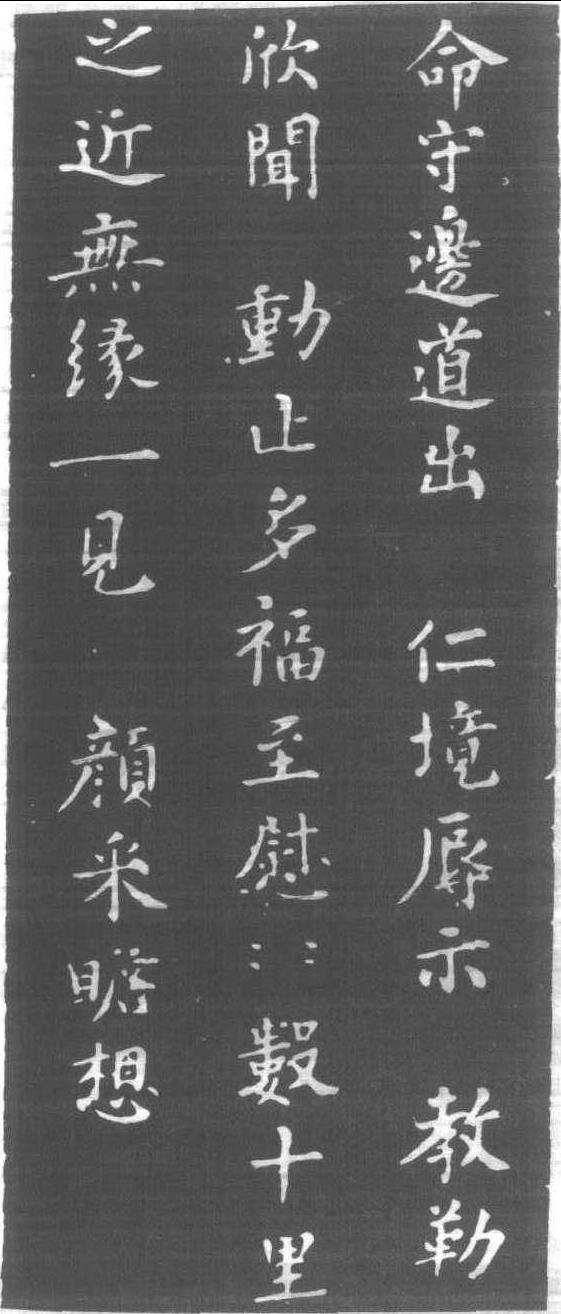 命守邊道出 仁境辱示 教勒
欣聞 動止多福至慰〻〻數十里
之近無緣一見 顔采瞻想